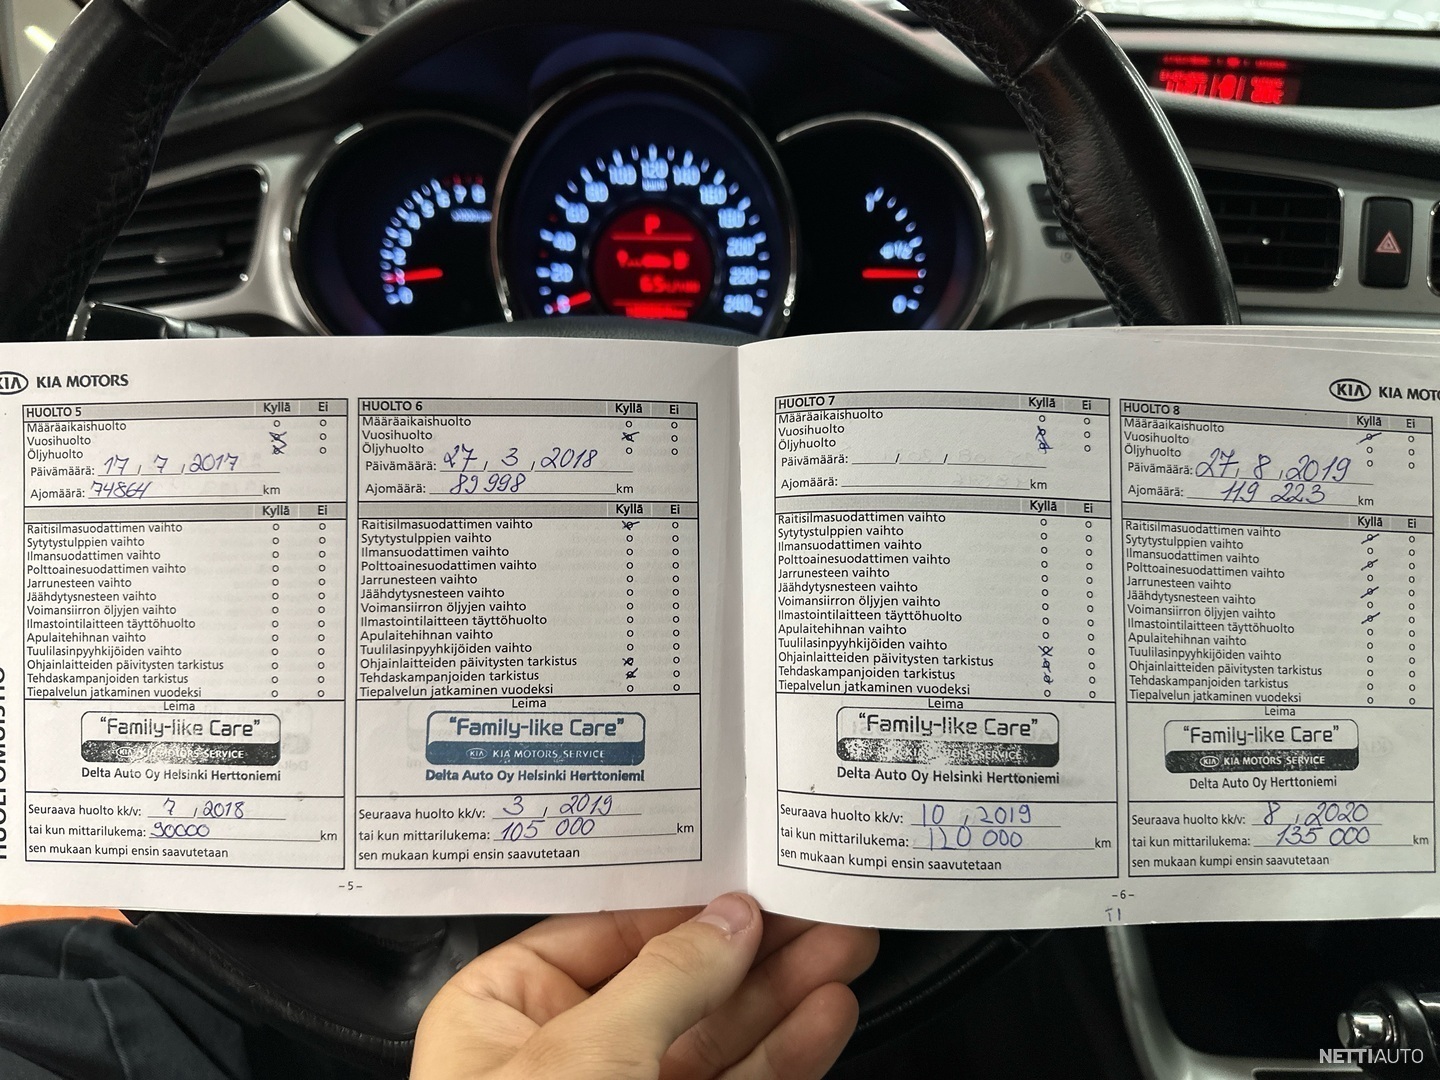 KIA KIA MOTORS
HUOLTO 5 Kyllä Ei
Määräaikaishuolto
Vuosihuolto
Öljyhuolto
Päivämäärä: 17, 7, 2017
Ajomäärä: 74864 km
Kyllä Ei
Raitisilmasuodattimen vaihto
Sytytystulppien vaihto
Ilmansuodattimen vaihto
Polttoainesuodattimen vaihto
Jarrunesteen vaihto
Jäähdytysnesteen vaihto
Voimansiirron öljyjen vaihto
Ilmastointilaitteen täyttöhuolto
Apulaitehihnan vaihto
Tuulilasinpyyhkijöiden vaihto
Ohjainlaitteiden päivitysten tarkistus
Tehdaskampanjoiden tarkistus
Tiepalvelun jatkaminen vuodeksi
Leima
"Family-like Care"
KIA KIA MOTORS SERVICE
Delta Auto Oy Helsinki Herttoniemi
Seuraava huolto kk/v: 7, 2018
tai kun mittarilukema: 90000 km
sen mukaan kumpi ensin saavutetaan
-5-
HUOLTO 6 Kyllä Ei
Määräaikaishuolto
Vuosihuolto
Öljyhuolto
Päivämäärä: 27, 3, 2018
Ajomäärä: 89 998 km
Kyllä Ei
Raitisilmasuodattimen vaihto
Sytytystulppien vaihto
Ilmansuodattimen vaihto
Polttoainesuodattimen vaihto
Jarrunesteen vaihto
Jäähdytysnesteen vaihto
Voimansiirron öljyjen vaihto
Ilmastointilaitteen täyttöhuolto
Apulaitehihnan vaihto
Tuulilasinpyyhkijöiden vaihto
Ohjainlaitteiden päivitysten tarkistus
Tehdaskampanjoiden tarkistus
Tiepalvelun jatkaminen vuodeksi
Leima
"Family-like Care"
KIA KIA MOTORS SERVICE
Delta Auto Oy Helsinki Herttoniemi
Seuraava huolto kk/v: 3, 2019
tai kun mittarilukema: 105 000 km
sen mukaan kumpi ensin saavutetaan
HUOLTO 7 Kyllä Ei
Määräaikaishuolto
Vuosihuolto
Öljyhuolto
Päivämäärä: / /
Ajomäärä: km
Kyllä Ei
Raitisilmasuodattimen vaihto
Sytytystulppien vaihto
Ilmansuodattimen vaihto
Polttoainesuodattimen vaihto
Jarrunesteen vaihto
Jäähdytysnesteen vaihto
Voimansiirron öljyjen vaihto
Ilmastointilaitteen täyttöhuolto
Apulaitehihnan vaihto
Tuulilasinpyyhkijöiden vaihto
Ohjainlaitteiden päivitysten tarkistus
Tehdaskampanjoiden tarkistus
Tiepalvelun jatkaminen vuodeksi
Leima
"Family-like Care"
KIA KIA MOTORS SERVICE
Delta Auto Oy Helsinki Herttoniemi
Seuraava huolto kk/v: 10, 2019
tai kun mittarilukema: 120 000 km
sen mukaan kumpi ensin saavutetaan
-6-
KIA KIA MOTO
HUOLTO 8 Kyllä Ei
Määräaikaishuolto
Vuosihuolto
Öljyhuolto
Päivämäärä: 27, 8, 2019
Ajomäärä: 119 223 km
Kyllä Ei
Raitisilmasuodattimen vaihto
Sytytystulppien vaihto
Ilmansuodattimen vaihto
Polttoainesuodattimen vaihto
Jarrunesteen vaihto
Jäähdytysnesteen vaihto
Voimansiirron öljyjen vaihto
Ilmastointilaitteen täyttöhuolto
Apulaitehihnan vaihto
Tuulilasinpyyhkijöiden vaihto
Ohjainlaitteiden päivitysten tarkistus
Tehdaskampanjoiden tarkistus
Tiepalvelun jatkaminen vuodeksi
Leima
"Family-like Care"
KIA KIA MOTORS SERVICE
Delta Auto Oy Herttoniemi
Seuraava huolto kk/v: 8, 2020
tai kun mittarilukema: 135 000 km
sen mukaan kumpi ensin saavutetaan
NETTIAUTO